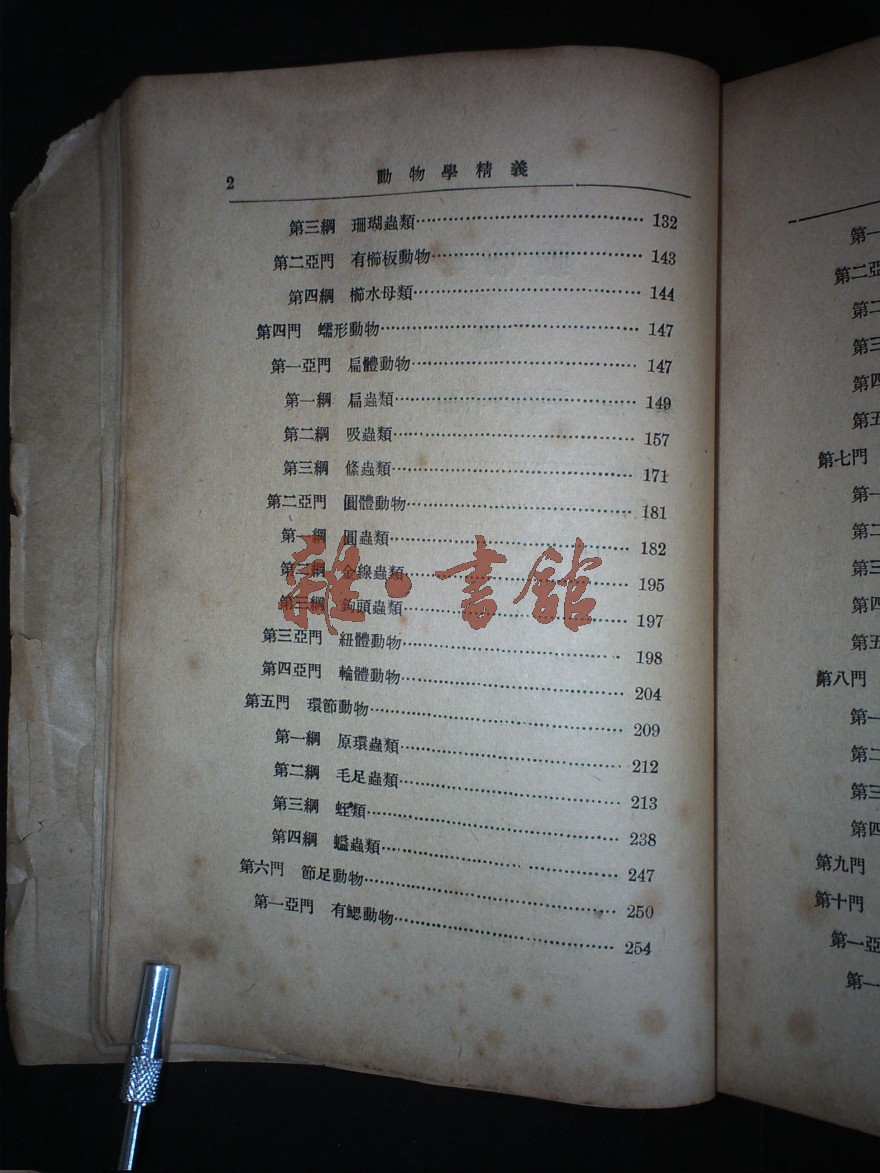 2 動物學精義
第三綱 珊瑚蟲類 132
第二亞門 有櫛板動物 143
第四綱 櫛水母類 144
第四門 蠕形動物 147
第一亞門 扁體動物 147
第一綱 扁蟲類 149
第二綱 吸蟲類 157
第三綱 條蟲類 171
第二亞門 圓體動物 181
第一綱 圓蟲類 182
第二綱 金線蟲類 195
第三綱 鉤頭蟲類 197
第三亞門 紐體動物 198
第四亞門 輪體動物 204
第五門 環節動物 209
第一綱 原環蟲類 212
第二綱 毛足蟲類 213
第三綱 蛭類 238
第四綱 螠蟲類 247
第六門 節足動物 250
第一亞門 有鰓動物 254
雜·書館
第一
第二亞
第二
第三
第四
第五
第七門
第一
第二
第三
第四
第五
第八門
第一
第二
第三
第四
第九門
第十門
第一亞
第一